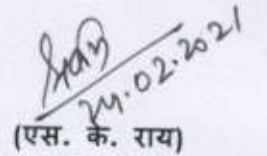 24.02.2021
(एस. के. राय)